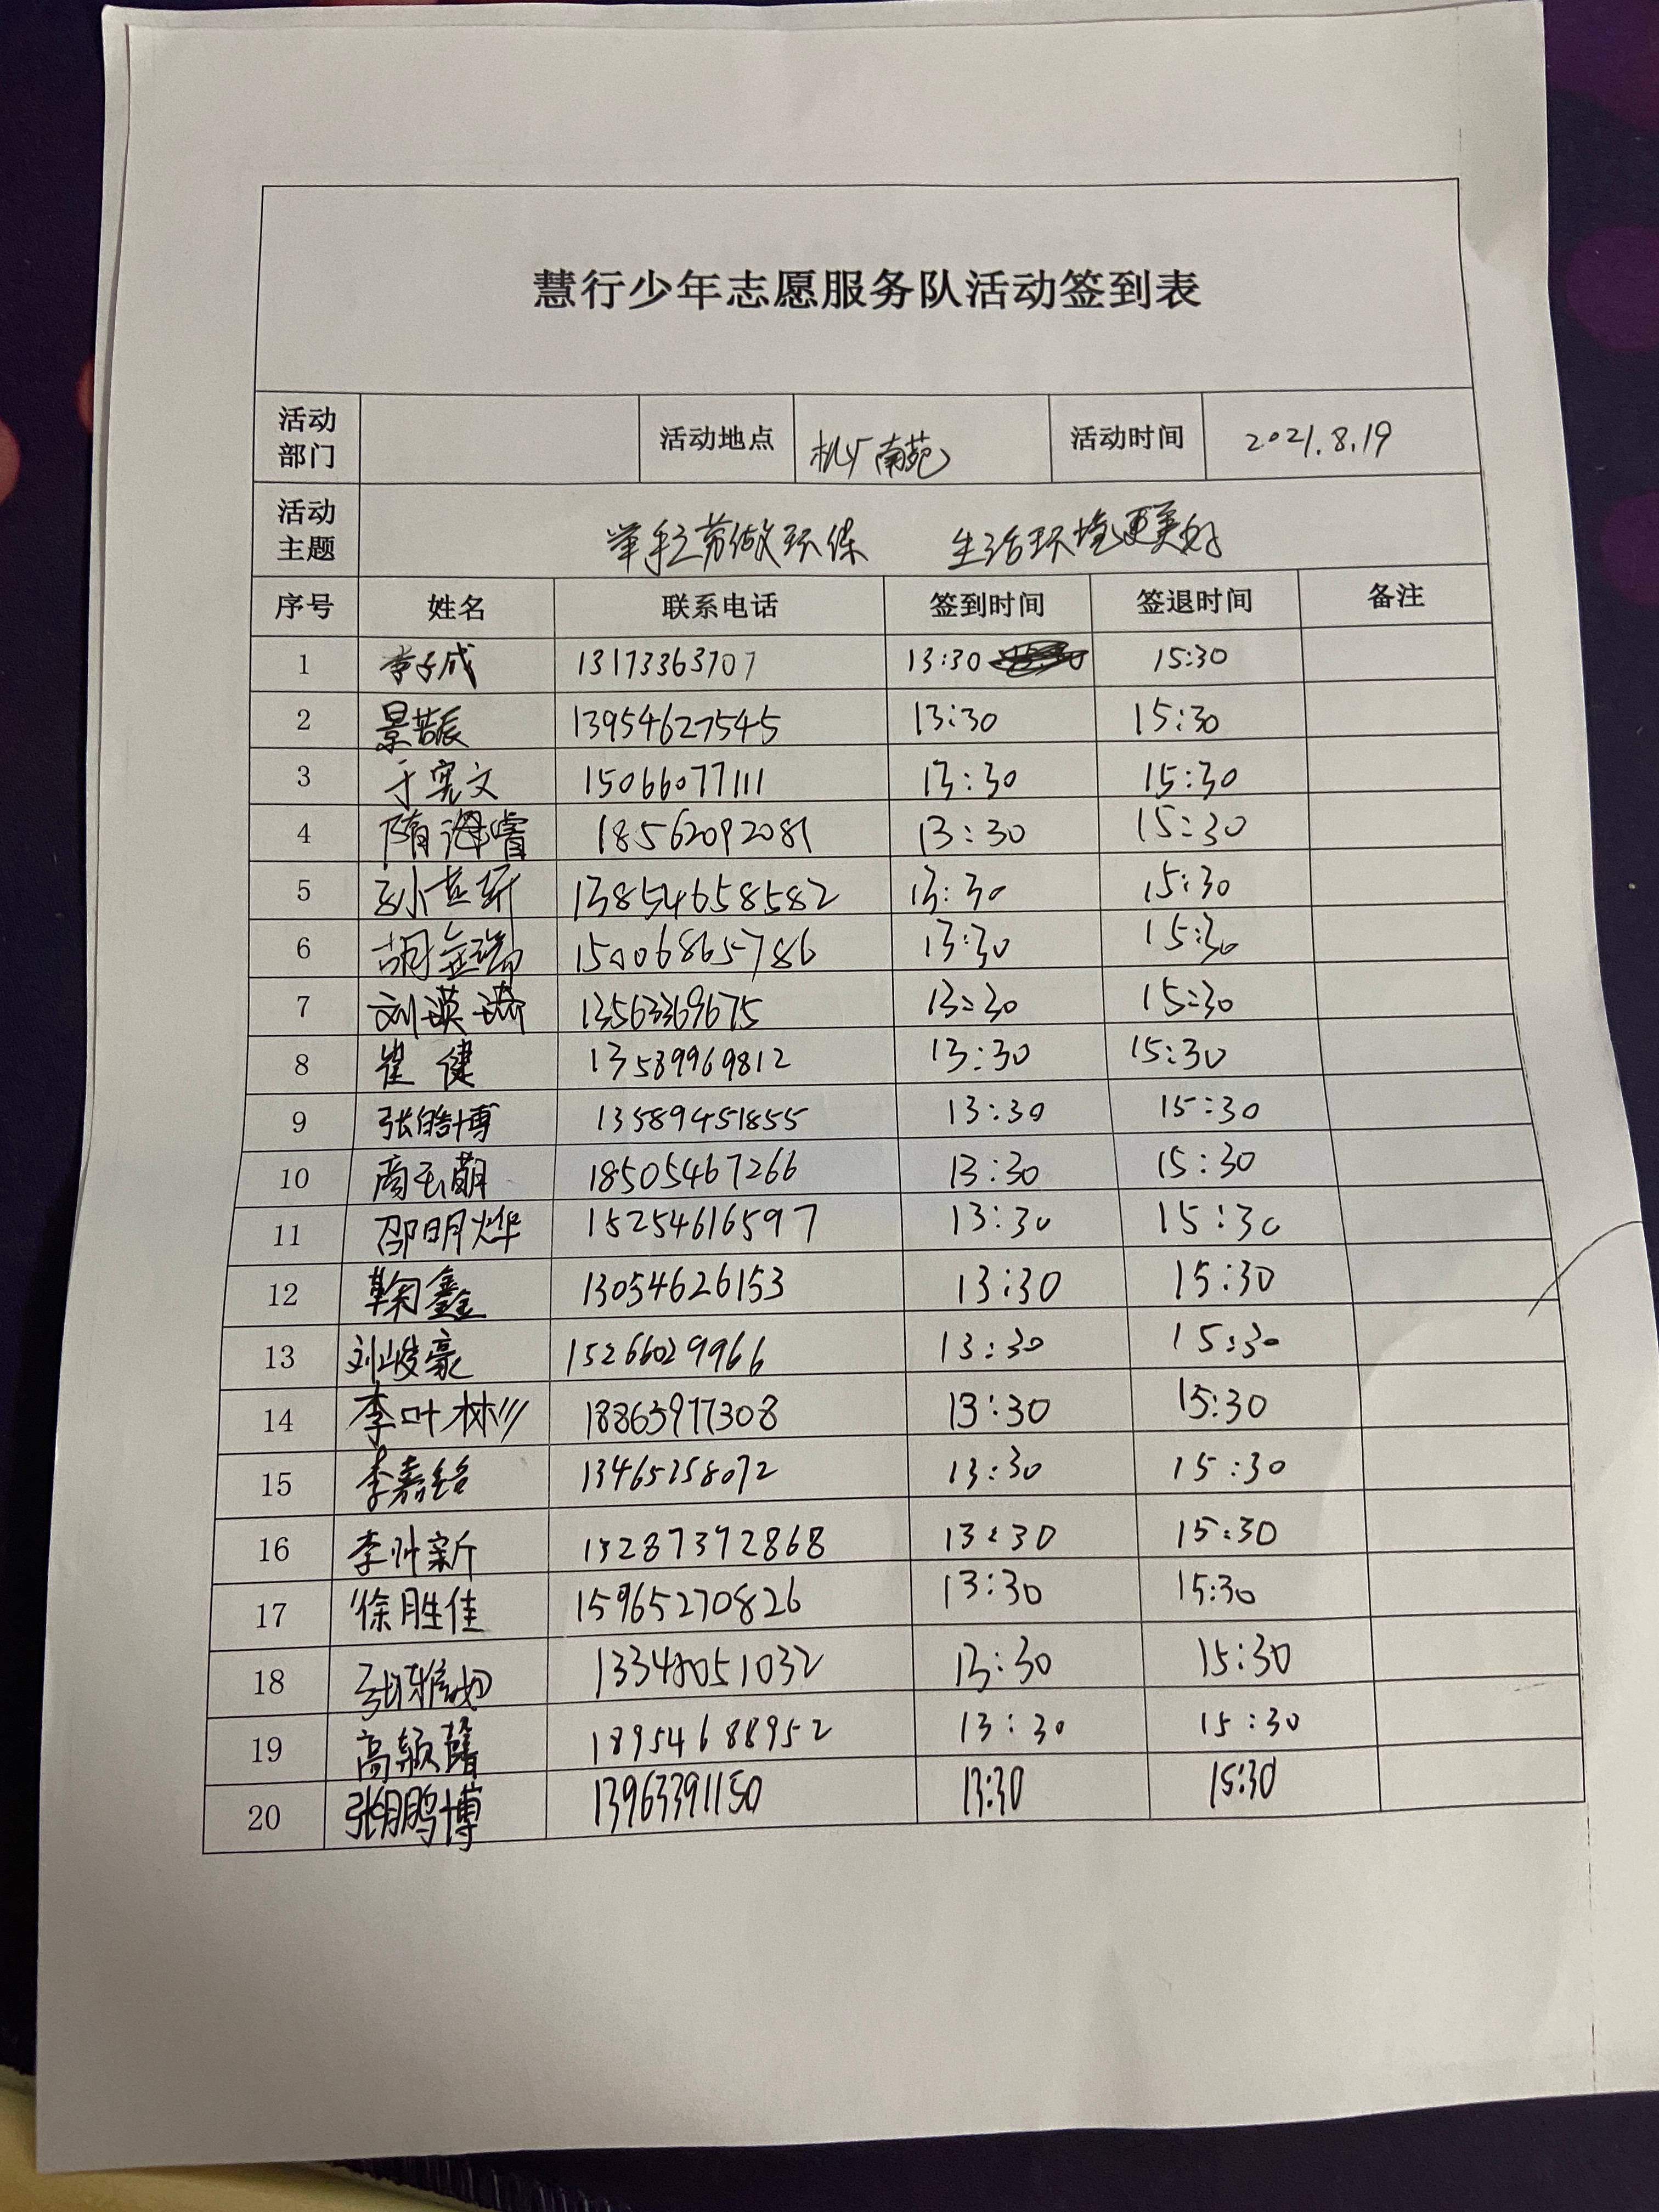 慧行少年志愿服务队活动签到表
活动部门 活动地点 机厂南苑 活动时间 2021.8.19
活动主题 举手之劳做环保 生活环境更美好
序号 姓名 联系电话 签到时间 签退时间 备注
1 李子成 13173363707 13:30 15:30
2 13954627545 13:30 15:30
3 于宪文 15066077111 13:30 15:30
4 隋海睿 18562092081 13:30 15:30
5 13854658582 13:30 15:30
6 15006865786 13:30 15:30
7 13563369675 13:30 15:30
8 崔健 13589969812 13:30 15:30
9 张皓博 13589451855 13:30 15:30
10 商玉萌 18505467266 13:30 15:30
11 邵明烨 15254616597 13:30 15:30
12 鞠鑫 13054626153 13:30 15:30
13 刘峻豪 15266029966 13:30 15:30
14 李叶彬 18863977308 13:30 15:30
15 李嘉铭 13465258072 13:30 15:30
16 15287372868 13:30 15:30
17 徐胜佳 15965270826 13:30 15:30
18 13:30 15:30
19 高颖馨 18954688952 13:30 15:30
20 张鹏博 13963391150 13:30 15:30